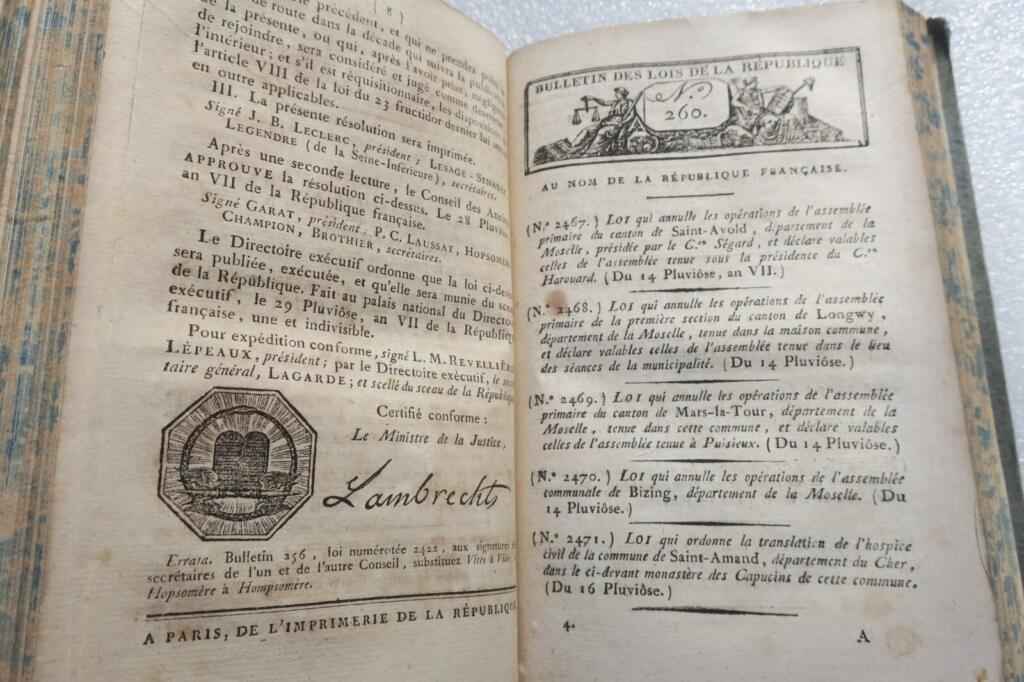 ( 8 )
précédent, et qui ne prendra point
de route dans la décade qui suivra la publication
de la présente, ou qui, après l'avoir prise, négligera
de rejoindre, sera considéré et jugé comme déserteur
l'intérieur; et s'il est réquisitionnaire, les dispositions
l'article VIII de la loi du 23 fructidor dernier lui seront
en outre applicables.
III. La présente résolution sera imprimée.
Signé J. B. LECLERC, président; LESAGE-SENAULT
LEGENDRE (de la Seine-Inférieure), secrétaires.
Après une seconde lecture, le Conseil des Anciens
APPROUVE la résolution ci-dessus. Le 28 Pluviôse
an VII de la République française.
Signé GARAT, président; P. C. LAUSSAT, HOPSOMÈRE
CHAMPION, BROTHIER, secrétaires.
Le Directoire exécutif ordonne que la loi ci-dessus
sera publiée, exécutée, et qu'elle sera munie du sceau
de la République. Fait au palais national du Directoire
exécutif, le 29 Pluviôse, an VII de la République
française, une et indivisible.
Pour expédition conforme, signé L. M. REVELLIÈRE
LÉPEAUX, président; par le Directoire exécutif, le secré
taire général, LAGARDE; et scellé du sceau de la République
Certifié conforme :
Le Ministre de la Justice,
Lambrechts
Errata. Bulletin 256, loi numérotée 2422, aux signatures
secrétaires de l'un et de l'autre Conseil, substituez Vitès à
Hopsomère à Hompsomère.
A PARIS, DE L'IMPRIMERIE DE LA RÉPUBLIQUE
BULLETIN DES LOIS DE LA RÉPUBLIQUE
N.º
260.
AU NOM DE LA RÉPUBLIQUE FRANÇAISE.
(N.º 2467.) LOI qui annulle les opérations de l'assemblée
primaire du canton de Saint-Avold, département de la
Moselle, présidée par le C.en Ségard, et déclare valables
celles de l'assemblée tenue sous la présidence du C.en
Harouard. (Du 14 Pluviôse, an VII.)
(N.º 2468.) LOI qui annulle les opérations de l'assemblée
primaire de la première section du canton de Longwy,
département de la Moselle, tenue dans la maison commune,
et déclare valables celles de l'assemblée tenue dans le lieu
des séances de la municipalité. (Du 14 Pluviôse.)
(N.º 2469.) LOI qui annulle les opérations de l'assemblée
primaire du canton de Mars-la-Tour, département de la
Moselle, tenue dans cette commune, et déclare valables
celles de l'assemblée tenue à Puisieux. (Du 14 Pluviôse.)
(N.º 2470.) LOI qui annulle les opérations de l'assemblée
communale de Bizing, département de la Moselle. (Du
14 Pluviôse.)
(N.º 2471.) LOI qui ordonne la translation de l'hospice
civil de la commune de Saint-Amand, département du Cher,
dans le ci-devant monastère des Capucins de cette commune.
(Du 16 Pluviôse.)
4.
A